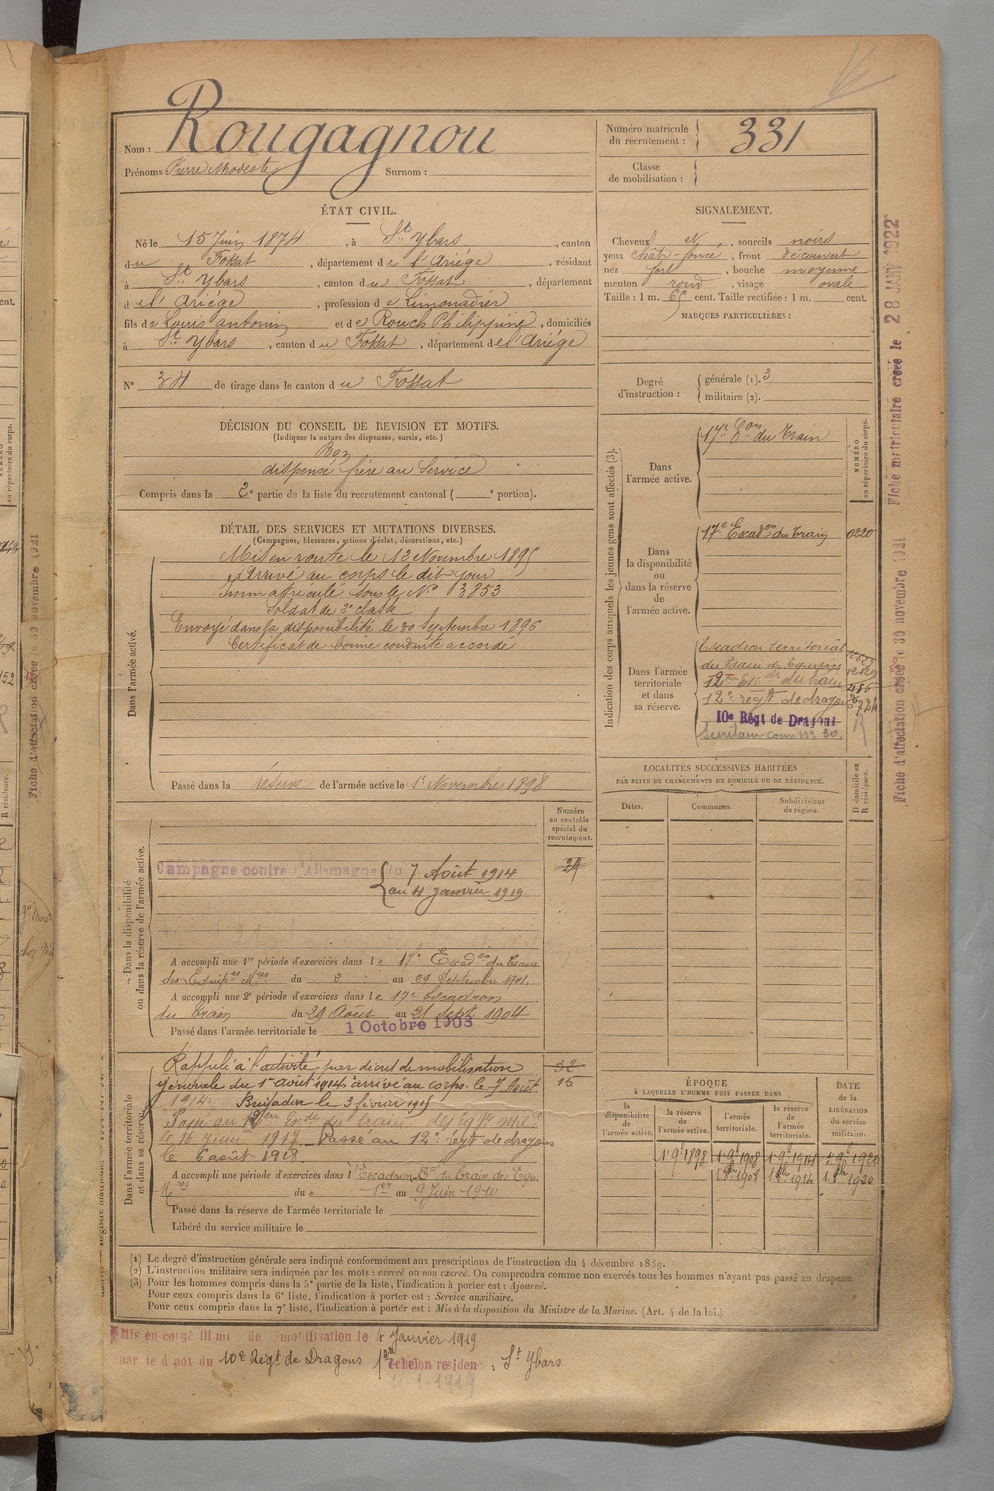 Nom : Rougagnou
Prénoms Pierre Modeste Surnom :
Numéro matricule du recrutement : 331
Classe de mobilisation :
ÉTAT CIVIL.
Né le 15 Juin 1874, à St Ybars, canton
du Fossat, département de l'Ariège, résidant
à St Ybars, canton du Fossat, département
de l'Ariège, profession de Limonadier
fils de Louis Antonin et de Rouch Philippine, domiciliés
à St Ybars, canton du Fossat, département de l'Ariège
N° 34 de tirage dans le canton du Fossat
SIGNALEMENT.
Cheveux et, sourcils noirs
yeux chât-foncé, front découvert
nez fort, bouche moyenne
menton rond, visage ovale
Taille : 1 m. 65 cent. Taille rectifiée : 1 m. cent.
MARQUES PARTICULIÈRES :
Degré d'instruction : générale (1). 3
militaire (2).
DÉCISION DU CONSEIL DE REVISION ET MOTIFS.
(Indiquer la nature des dispenses, sursis, etc.)
Bon
dispensé frère au Service
Compris dans la 2e partie de la liste du recrutement cantonal ( e portion).
DÉTAIL DES SERVICES ET MUTATIONS DIVERSES.
(Campagnes, blessures, actions d'éclat, décorations, etc.)
Dans l'armée active.
Mis en route le 13 Novembre 1895
Arrivé au corps le dit jour
Immatriculé sous le N° 13853
Soldat de 2e classe
Envoyé dans la disponibilité le 20 Septembre 1896
Certificat de bonne conduite accordé
Passé dans la réserve de l'armée active le 1er Novembre 1898
Indication des corps auxquels les jeunes gens sont affectés (3).
NUMÉRO au répertoire du corps.
Dans l'armée active.
17e Eon du Train
Dans la disponibilité ou dans la réserve de l'armée active.
17e Escadon du Train 0220
Dans l'armée territoriale et dans sa réserve.
Escadron territorial
du Train des Equipages
12me Esc on du train
12e régt de dragons
10e Régt de Dragons
LOCALITÉS SUCCESSIVES HABITÉES
PAR SUITE DE CHANGEMENTS DE DOMICILE OU DE RÉSIDENCE.
D domicile ou R résidence.
Dates. Communes. Subdivisions de région.
Numéro au contrôle spécial du recrutement.
Dans la disponibilité ou dans la réserve de l'armée active.
Campagne contre l'Allemagne du 7 Août 1914
au 4 Janvier 1919
24
A accompli une 1re période d'exercices dans le 17e Escadon du Train
des Equipes Mres du 2 au 29 Septembre 1901.
A accompli une 2e période d'exercices dans le 17e Escadron
du Train du 29 Août au 21 Sept 1904
Passé dans l'armée territoriale le 1 Octobre 1908
Dans l'armée territoriale et dans sa réserve.
Rappelé à l'activité par décret de mobilisation
générale du 1er août 1914, arrivé au corps le 7 Août
1914. Brigadier le 3 février 1915
le 16 Juin 1917. Passé au 12e régt de dragons
le 6 août 1918.
32
15
A accompli une période d'exercices dans l'Escadron Tal du Train des Equ.
Mres du 1er au 9 Juin 1910
Passé dans la réserve de l'armée territoriale le
Libéré du service militaire le
ÉPOQUE
À LAQUELLE L'HOMME DOIT PASSER DANS
la disponibilité de l'armée active. la réserve de l'armée active. l'armée territoriale. la réserve de l'armée territoriale.
DATE de la LIBÉRATION du service militaire.
1 9bre 1898 1 9bre 1908 1 9bre 1914 1 9bre 1920
1 8bre 1908 1 8bre 1914 1 8bre 1920
(1) Le degré d'instruction générale sera indiqué conformément aux prescriptions de l'instruction du 4 décembre 1889.
(2) L'instruction militaire sera indiquée par les mots : exercé ou non exercé. On comprendra comme non exercés tous les hommes n'ayant pas passé au drapeau.
(3) Pour les hommes compris dans la 5e partie de la liste, l'indication à porter est : Ajourné.
Pour ceux compris dans la 6e liste, l'indication à porter est : Service auxiliaire.
Pour ceux compris dans la 7e liste, l'indication à porter est : Mis à la disposition du Ministre de la Marine. (Art. 4 de la loi.)
Mis en congé illimité de démobilisation le 4 Janvier 1919
par le dépôt du 10e Régt de Dragons 1er échelon residence : St Ybars
11-1-1919
Fiche matriculaire créée le 28 JANV 1922
Fiche d'affectation créée le 30 novembre 1921